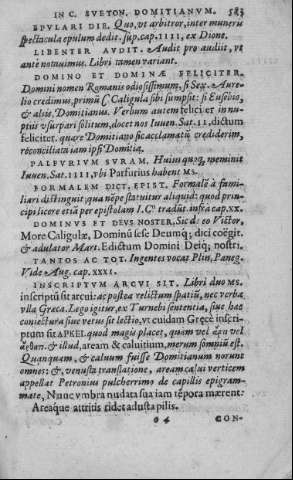 IN C. SVETON. DOMITIANVM. 583
EPVLARI DIE. Quo, vt arbitror, inter munera
spectacula epulum dedit. sup. cap. IIII, ex Dione.
LIBENTER AVDIT. Audit pro audiit, vt
ante notauimus. Libri tamen variant.
DOMINO ET DOMINAE FELICITER.
Domini nomen Romanis odiosissimum, si Sex. Aure-
lio credimus, primũ C. Caligula sibi sumpsit: si Eusebio,
& aliis, Domitianus. Verbum autem felicit er in nu-
ptiis vsurpari solitum, docet nos Iuuen. Sat. II, dictum
feliciter. quare Domitiano sic acclamatũ crediderim,
reconciliata iam ipsi Domitia.
PALFVRIVM SVRAM. Huius quoq, meminit
Iuuen. Sat. IIII, vbi Parfurius habent MS.
FORMALEM DICT. EPIST. Formalē à fami-
liari distinguit qua nēpe statuitur aliquid: quod prin-
cipi licere etiā per epistolam I. Cᵗⁱ tradũt. infra cap. XX.
DOMINVS ET DEVS NOSTER. Sic & eo Victor,
More Caligulæ, Dominũ sese Deumq; dici coëgit.
& adulator Mart. Edictum Domini Deiq; nostri.
TANTOS AC TOT. Ingentes vocat Plin. Paneg.
Vide Aug. cap. XXXI.
INSCRIPTVM ARCVI SIT. Libri duo MS.
inscriptũ sit arcui: ac postea relictum spatiũ, nec verba
vlla Græca. Lego igitur, ex Turnebi sententia, siue hæc
coniectura siue verus sit lectio, vt cuidam Græcè inscri-
ptum sit ΑΡΚΕΙ. quod magis placet, quàm vel
& illud, aream & caluitium, merum somniũ est.
Quanquam, & caluum fuisse Domitianum norunt
omnes: &, venusta translatione, aream caluі verticem
appellat Petronius pulcherrimo de capillis epigram-
mate, Nunc vmbra nudata sua iam tēpora mærent:
Areaque attritis ridet adusta pilis.
CON-